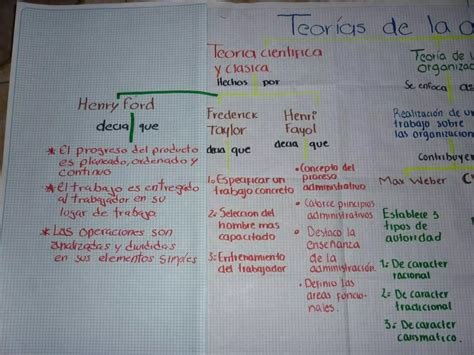 Teorías de la o
Teoria cientifica
y clasica
Hechos por
Henry Ford
decia que
* El progreso del producto
es planeado, ordenado y
continuo
* El trabajo es entregado
al trabajador en su
lugar de trabajo
* Las operaciones son
analizadas y divididas
en sus elementos simples
Frederick
Taylor
decia que
1. Especificar un
trabajo concreto
2. Seleccion del
hombre mas
capacitado
3. Entrenamiento
del trabajador
Henri
Fayol
decia que
• Concepto del
proceso
administrativo
• Catorce principios
administrativos
• Destaco la
enseñanza
de la
administración.
• Definio las
areas funcio-
nales.
Teoria de l
organizac
Se enfoca as
Realización de u
trabajo sobre
las organizacion
Contribuyer
Max Weber
Establece 3
tipos de
autoridad
1. De caracter
racional
2. De caracter
tradicional
3. De caracter
carismatico.